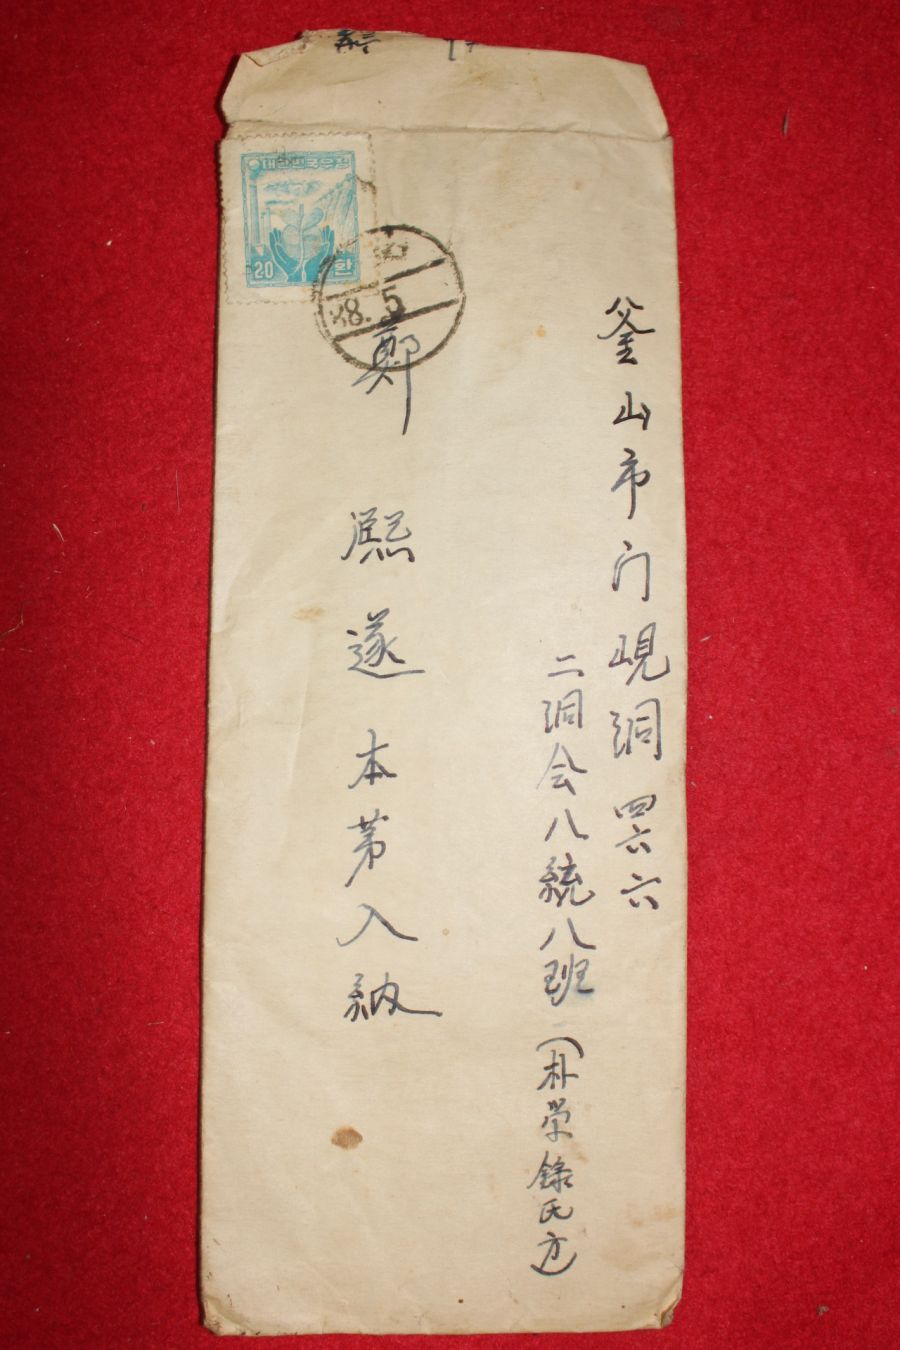 대한민국우표
20 환
88. 5
釜山市门峴洞 四六六
二洞会八統八班 (朴栄錄氏方)
鄭熙遂 本第入納